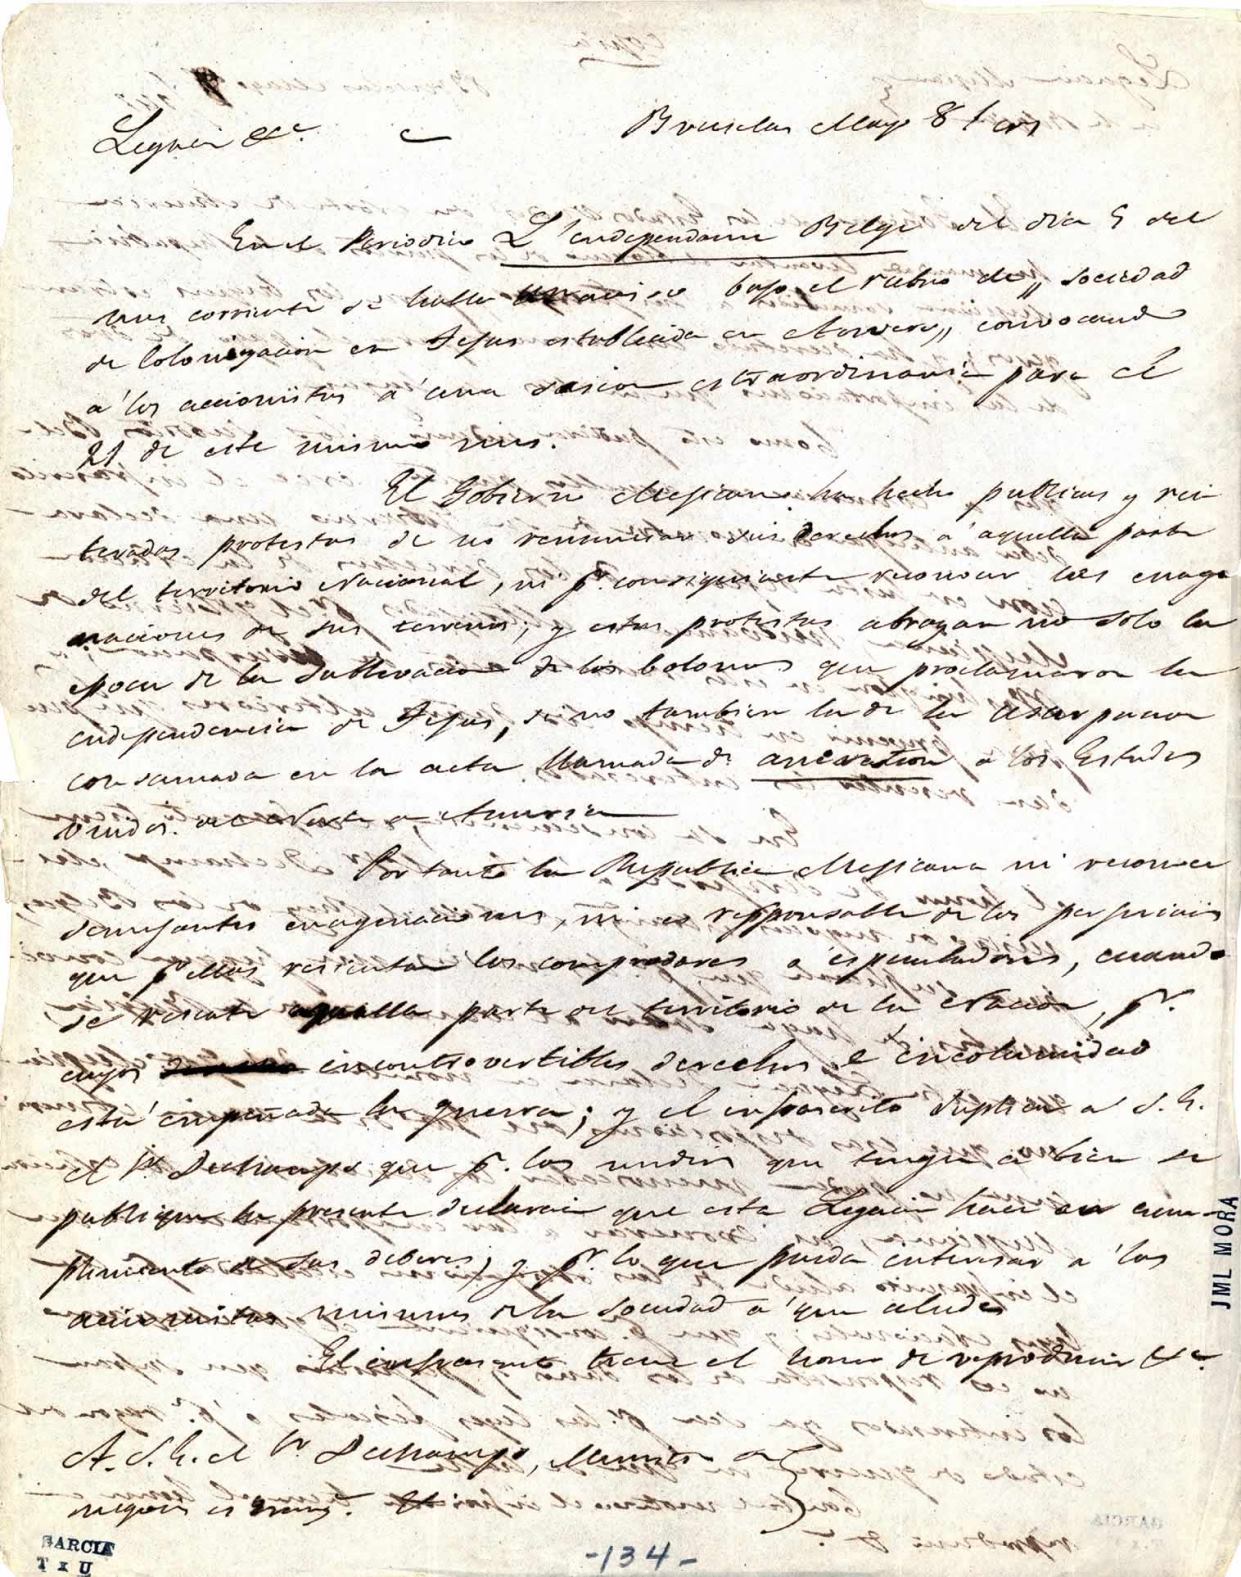 Legacion &c.ª Bruselas Mayo 8
En el Periodico L'independance Belge del dia 5 del
mes corriente se halla un aviso bajo el rubro de "Sociedad
de Colonizacion en Tejas establecida en Anveres" convocando
á los accionistas á una sesion estraordinaria para el
21 de este mismo mes.
El Gobierno Mejicano ha hecho publicas y rei
teradas protestas de no renunciar sus derechos á aquella parte
del territorio Nacional, ni p.r consiguiente reconocer las enage
naciones de sus terrenos; y estas protestas abrazan no solo la
epoca de la sublevacion de los Colonos que proclamaron la
independencia de Tejas, sino tambien la de la usurpacion
consumada en la acta llamada de annexation á los Estados
Unidos del Norte de America
Por tanto la Republica Mejicana ni reconoce
semejantes enagenaciones, ni es responsable de los perjuicios
que p.r ellas resientan los compradores ó especuladores, cuando
se rescate aquella parte del territorio de la Nacion, p.r
cuyos incontrovertibles derechos é incolumidad
está empeñada la guerra; y el infrascrito suplica a S. E.
el S.r Dechamps que p.r los medios que tenga á bien se
publique la presente declaracion que esta Legacion hace en cum-
plimiento de sus deberes, y p.r lo que pueda interesar á los
accionistas mismos de la Sociedad á que alude
El infrascrito tiene el honor de reproducir &c.ª
A. S. E. el S.r Dechamps, Ministro de
negocios estrang.s
GARCIA
T x U
-134-
JML MORA